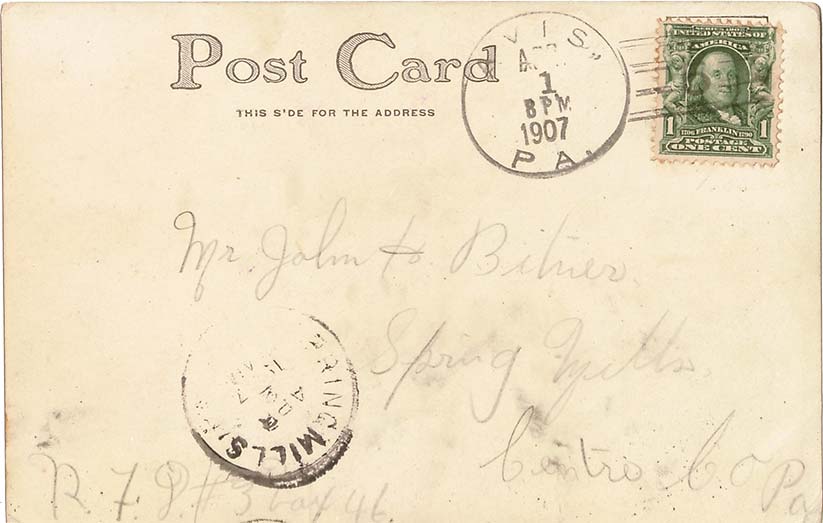 Post Card
THIS S'DE FOR THE ADDRESS
VIS,
1
8 PM
1907
PA.
SERIES 1902
UNITED STATES OF
AMERICA
1 1706 FRANKLIN 1790 1
POSTAGE
ONE CENT
Mr. John H. Bitner.
Spring Mills.
PRING MILLS
Centre Co Pa
R. F. D. #3 box 46